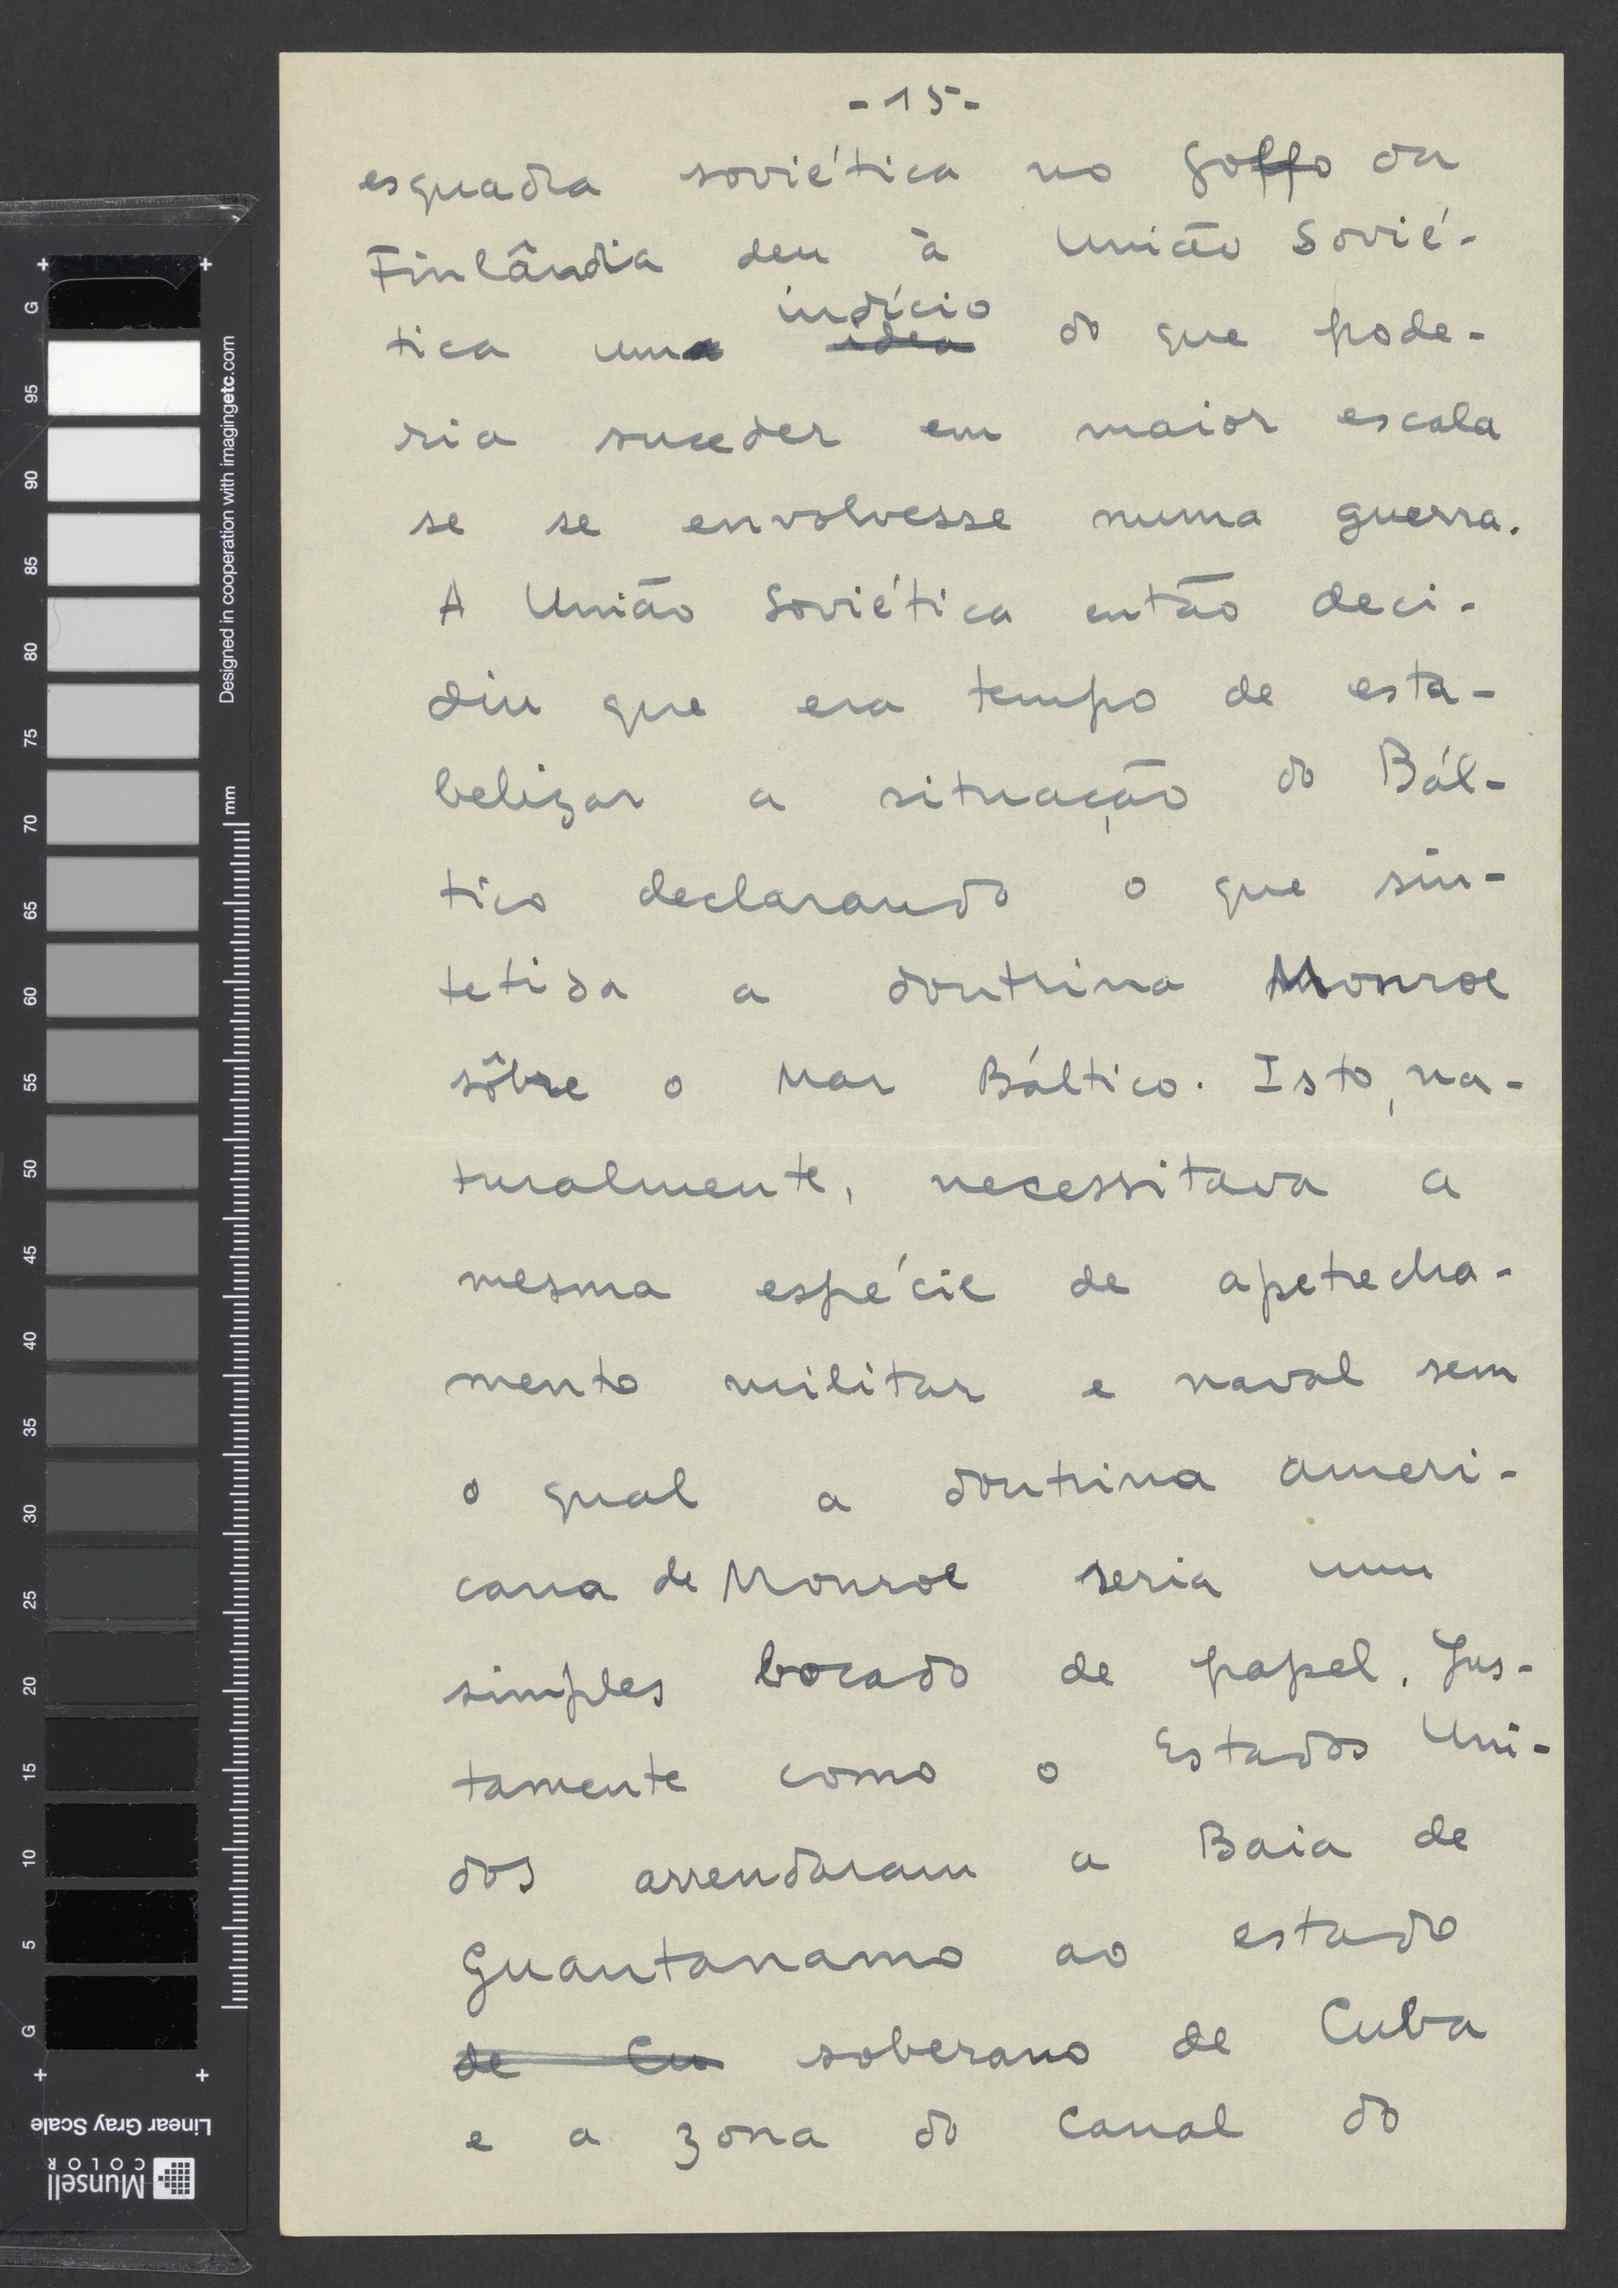 -15-
esquadra soviética no golfo da
Finlândia deu à União Sovié-
indício
tica uma idea do que pode-
ria suceder em maior escala
se se envolvesse numa guerra.
A União Soviética então deci-
diu que era tempo de esta-
belizar a situação do Bál-
tico declarando o que sin-
tetisa a doutrina Monroe
sôbre o Mar Báltico. Isto, na-
turalmente, necessitava a
mesma espécie de apetrecha-
mento militar e naval sem
o qual a doutrina ameri-
cana de Monroe seria um
simples bocado de papel. Jus-
tamente como o Estados Uni-
dos arrendaram a Baia de
Guantanamo ao estado
de Cu soberano de Cuba
e a zona do Canal do
G
95
90
85
80
75
70
65
60
55
50
45
40
35
30
25
20
15
10
5
G
Designed in cooperation with imagingetc.com
mm
Linear Gray Scale
Munsell
COLOR